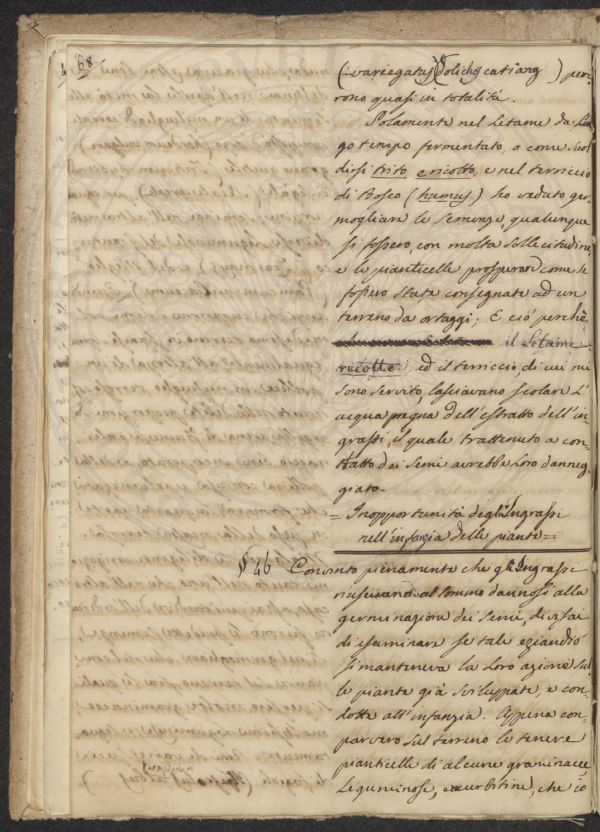 68
(variegatus) Dolichos catiang ) peri-
rono quasi in totalità.
Solamente nel Letame da Lun-
go tempo fermentato, o come suol
dirsi trito e ricotto, e nel terriccio
di Bosco (humus) ho veduto ger-
mogliare le semenze, qualunque
si fossero, con molta sollecitudine,
e le pianticelle prosperare come se
fossero state consegnate ad un
terreno da ortaggi; E ciò perchè
il Letame
ricotto ed il terriccio, di cui mi
sono servito, lasciavano scolare l'
acqua pregna dell'estratto dell'in-
grassi, il quale trattenuto a con-
tatto dei semi avrebbe loro danneg-
giato.
= Inopportunità degl'Ingrassi
nell'infanzia delle piante =
§ 46 Convinto pienamente che gl'Ingrassi
riuscivano al sommo dannosi alla
germinazione dei semi, divisai
di esaminare se tale eziandio
si manteneva la loro azione sul-
le piante già sviluppate, e con-
dotte all'infanzia. Appena com-
parvero sul terreno le tenere
pianticelle di alcune graminacee
Leguminose, cucurbitine, che io